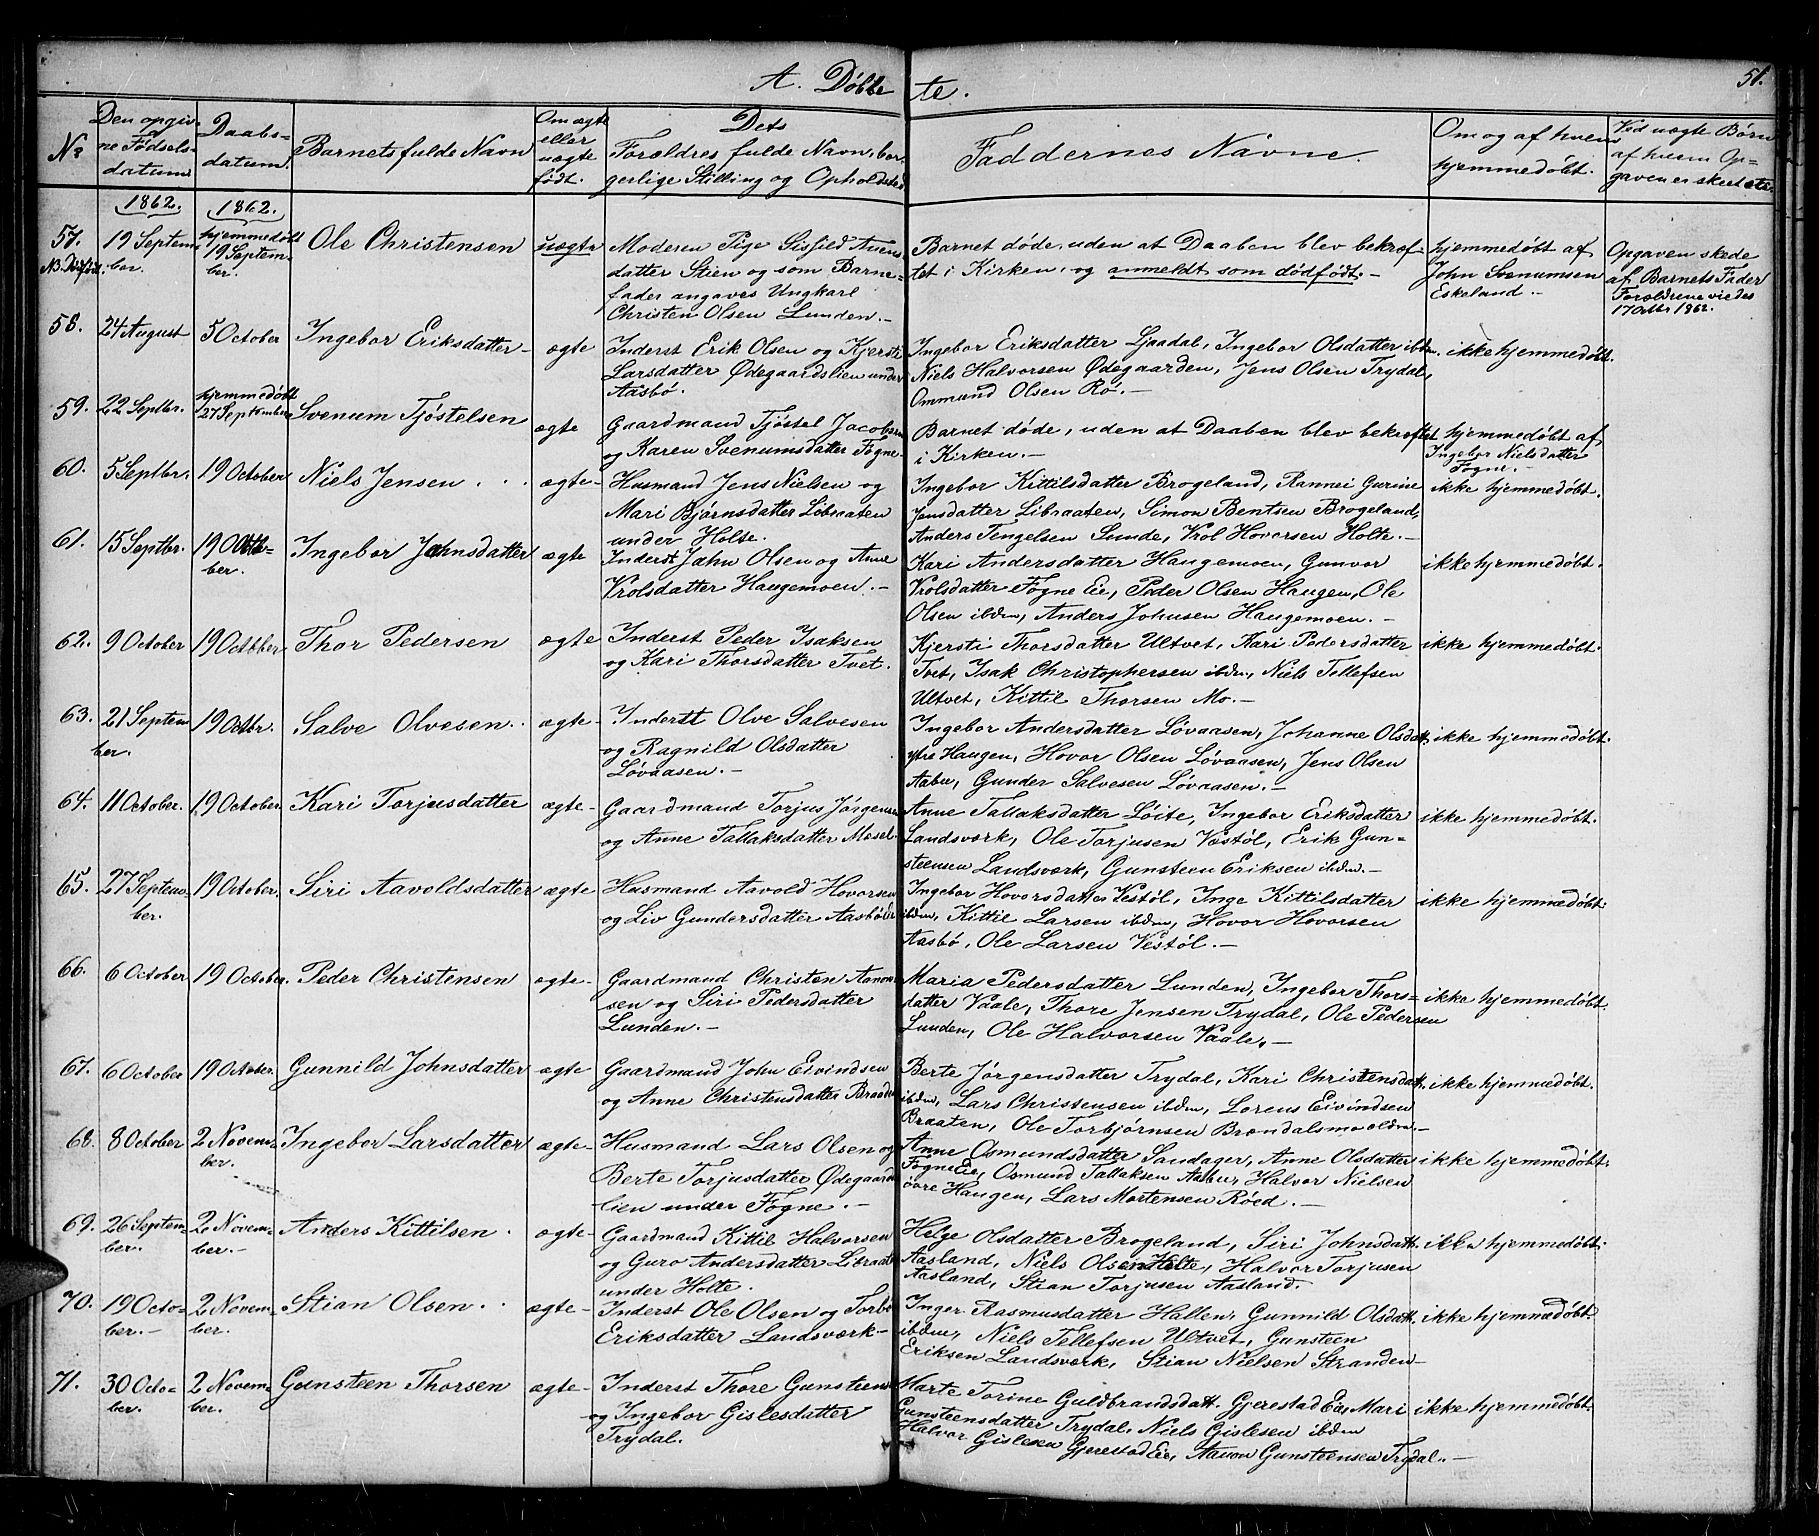 A. Døbte
51.
No
Den opgivne Fødselsdatum
Daabsdatum.
Barnets fulde Navn
Om ægte eller uægte født.
Dets Forældres fulde Navn, borgerlige Stilling og Opholdsted
Faddernes Navne.
Om og af hvem hjemmedøbt.
Ved uægte Børn af hvem Opgaven er skeet etc.
1862.
1862.
57.
19 September.
hjemmedøbt 19 September.
Ole Christensen
uægte
Moderen Pige
datter Stien og som Barnefader angaves Ungkarl
Christen Olsen Lunden.-
Barnet døde, uden at Daaben blev bekræftet i Kirken, og anmeldt som dødfødt.-
hjemmedøbt af John Svenumsen Eskeland.-
Opgaven skede af Barnets Fader
Forældrene viedes 17 Octbr 1862.
58.
24 August
5 October
Ingebor Eriksdatter-
ægte
Inderst Erik Olsen og Kjersti
Larsdatter Ødegaardslien under
Aasbø.
Ingebor Eriksdatter Ljaadal, Ingebor Olsdatter ibdm.
Niels Halvorsen Ødegaarden, Jens Olsen Trydal,
Ommund Olsen Rø.-
ikke hjemmedøbt.
59.
22 Septbr.
hjemmedøbt 27 September
Svenum Tjøstelsen
ægte
Gaardmand Tjøstel Jacobsen
og Karen Svenumsdatter Fogne-
Barnet døde, uden at Daaben blev bekræftet
i Kirken.-
hjemmedøbt af Ingebor Nielsdatter Fogne.-
60.
5 Septbr.
19 October
Niels Jensen
ægte-
Husmand Jens Nielsen og
Mari Bjørnsdatter Libraaten
under Holte.
Ingebor Kittilsdatter Brogeland, Rannei Gurine
Jensdatter Libraaten, Simon Bentsen Brogeland,
Anders Tengelsen Sunde, Vrol Hovorsen Holte.-
ikke hjemmedøbt.
61.
15 Septbr.
19 October.
Ingebor Jahnsdatter
ægte
Inderst Jahn Olsen og Anne
Vrolsdatter Haugemoen.-
Kari Andersdatter Haugemoen, Gunvor
Vrolsdatter Fogne Eie, Peder Olsen Haugen, Ole
Olsen ibdm, Anders Johnsen Haugemoen.-
ikke hjemmedøbt.
62.
9 October
19 October
Thor Pedersen
ægte
Inderst Peder Isaksen
og Kari Thorsdatter Tvet.
Kjersti Thorsdatter Ultvet, Kari Pedersdatter
Tvet, Isak Christophersen ibdm, Niels Tellefsen
Ultvet, Kittil Thorsen Mo.-
ikke hjemmedøbt.
63.
21 September.
19 Octbr.
Salve Olvesen.
ægte-
Inderst Olve Salvesen
og Ragnild Olsdatter
Løvaasen.-
Ingebor Andersdatter Løvaasen, Johanne Olsdatt.
ytre Haugen, Hovor Olsen Løvaasen, Jens Olsen
Aabu, Gunder Salvesen Løvaasen.-
ikke hjemmedøbt.
64.
11 October.
19 October
Kari Torjusdatter
ægte-
Gaardmand Torjus Jørgensen
og Anne Tallaksdatter Mosel-
Anne Tallaksdatter Løite, Ingebor Eriksdatter
Landsværk, Ole Torjusen Vestøl, Erik Gunsteensen Landsværk, Gunsteen Eriksen ibdm.-
ikke hjemmedøbt.
65.
27 September.
19 October.
Siri Aavoldsdatter
ægte
Husmand Aavold Hovorsen
og Liv Gundersdatter Aasbø Eie
Ingebor Hovorsdatter Vestøl, Inge Kittilsdatter
ibdm, Kittil Larsen ibdm, Hovor Hovorsen
Aasbø, Ole Larsen Vestøl.-
ikke hjemmedøbt.
66.
6 October
19 October.
Peder Christensen
ægte-
Gaardmand Christen Aanonsen og Siri Pedersdatter
Lunden.-
Maria Pedersdatter Lunden, Ingebor Thorsdatter Vaale, Thore Jensen Trydal, Ole Pedersen
Lunden, Ole Halvorsen Vaale.-
ikke hjemmedøbt.
67.
6 October
19 October.
Gunnild Johnsdatter
ægte
Gaardmand John Eivindsen
og Anne Christensdatter Braaten
Berte Jørgensdatter Trydal, Kari Christensdatt.
ibdm, Lars Christensen ibdm, Lorens Eivindsen
Braaten, Ole Torbjørnsen Brøndalsmoelden.-
ikke hjemmedøbt.
68.
8 October
2 November.
Ingebor Larsdatter
ægte-
Husmand Lars Olsen og
Berte Torjusdatter Ødegaards
lien under Fogne.-
Anne Osmundsdatter Sandager, Anne Olsdatter
Fogne Eie, Osmund Tallaksen Aabu, Halvor Nielsen
øvre Haugen, Lars Mortensen Røed.-
ikke hjemmedøbt.
69.
26 September.
2 November.-
Anders Kittilsen
ægte-
Gaardmand Kittil Halvorsen
og Guro Andersdatter Libraaten
under Holte.
Helge Olsdatter Brogeland, Siri Johnsdatt.
Aasland, Niels Olsen Holte, Halvor Torjusen
Aasland, Stian Torjusen Aasland.
ikke hjemmedøbt.
70.
19 October.-
2 November.
Stian Olsen
ægte-
Inderst Ole Olsen og Torbor
Eriksdatter Landsværk-
Inger Rasmusdatter Hallen, Gunnild Olsdatt.
ibdm, Niels Tellefsen Ultvet, Gunsteen
Eriksen Landsværk, Stian Nielsen Stranden-
ikke hjemmedøbt.
71.
30 October.
2 November.
Gunsteen Thorsen
ægte-
Inderst Thore Gunsteensen
og Ingebor Gislesdatter
Trydal.
Marte Torine Guldbrandsdatt. Gjerestad Eie, Mari
Gunsteensdatter Trydal, Niels Gislesen ibdm
Halvor Gislesen Gjerestad Eie, Aanon Gunsteensen Trydal.-
ikke hjemmedøbt.